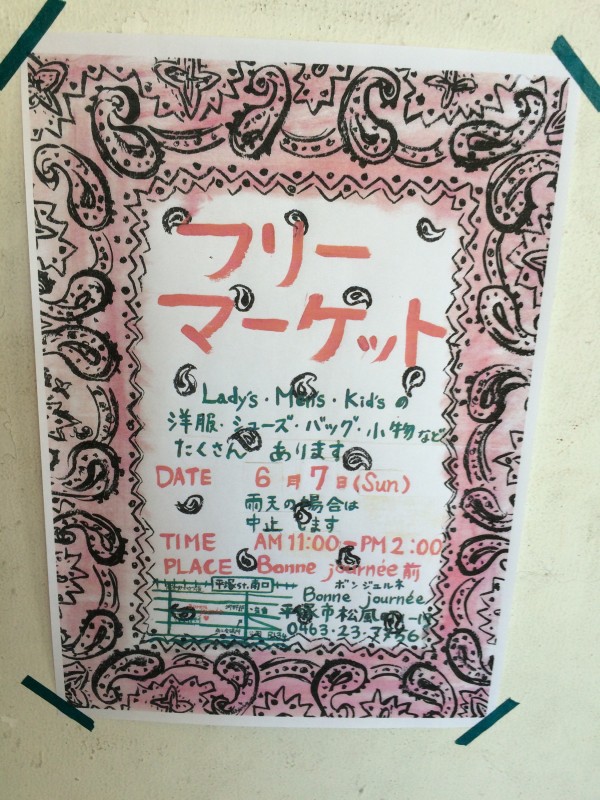 フリー
マーケット
Lady's・Men's・Kid's の
洋服・シューズ・バッグ・小物など
たくさん あります
DATE 6月7日(Sun)
雨天の場合は
中止します
TIME AM11:00-PM2:00
PLACE Bonne journée前
平塚st.南口
ボンジュルネ
Bonne journée
平塚市松風町
0463-23-
R134